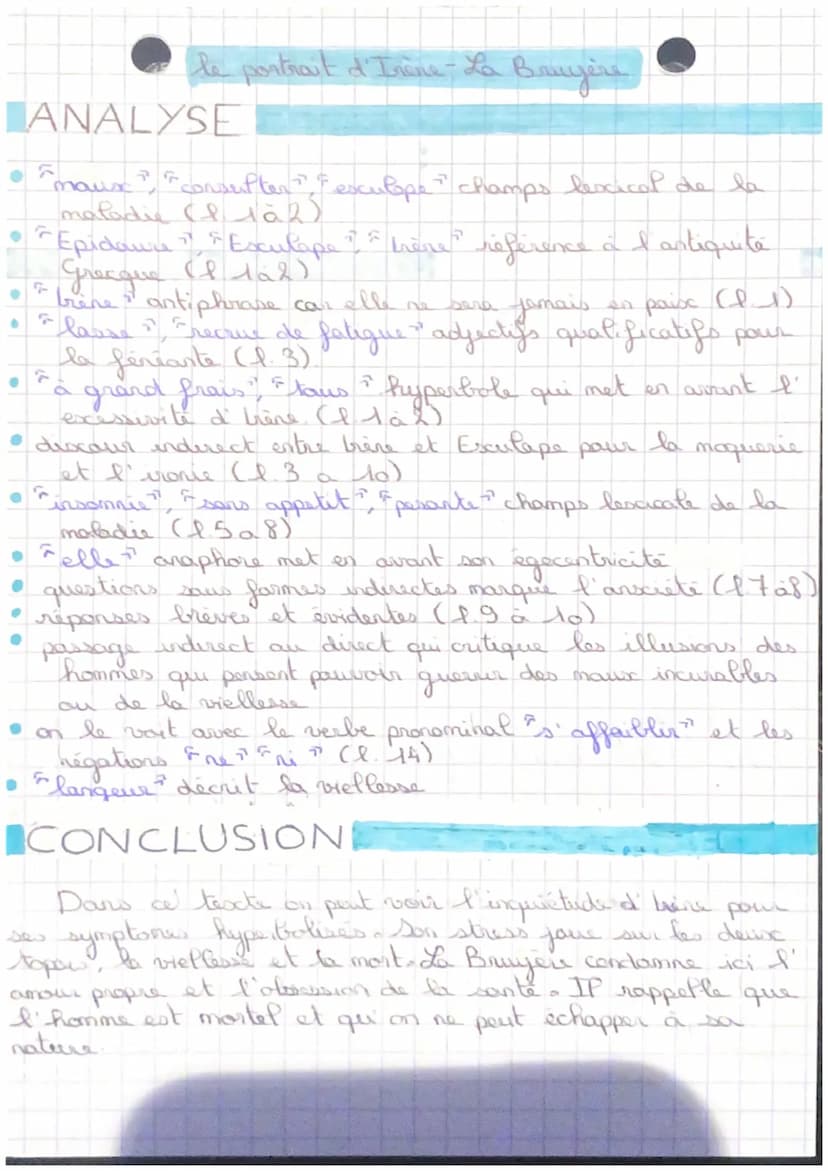 le portrait d'Irène - La Bruyère
ANALYSE
• "maux", "consulter", "esculape" champs lexical de la
maladie (l. 1à2)
• "Epidaure", "Esculape", "Irène" référence à l'antiquité
Grecque (l 1à2)
• "Irène" antiphrase car elle ne sera jamais en paix (l. 1)
• "lasse", "recrue de fatigue" adjectifs qualificatifs pour
la féniante (l. 3)
• "à grand frais", "tous" hyperbole qui met en avant l'
excessivité d'Irène. (l 1à2)
• discour indirect entre Irène et Esculape pour la moquerie
et l'ironie (l. 3 a 10)
• "insomnie", "sans appetit", "pesante" champs lexicale de la
maladie (l. 5 a 8)
• "elle" anaphore met en avant son égocentricité
• questions sous formes indirectes marque l'anxiété (l. 7 à8)
• réponses brèves et évidentes (l. 9 à 10)
• passage indirect au direct qui critique les illusions des
hommes qui pensent pouvoir guerrir des maux incurables
ou de la viellesse
• on le voit avec le verbe pronominal "s'affaiblir" et les
négations "ne" "ni" (l. 14)
• "langeur" décrit la viellesse
CONCLUSION
Dans ce texte on peut voir l'inquiétude d'Irène pour
ses symptomes hyperbolisés. Son stress joue sur les deux
topos, la viellesse et la mort. La Bruyère condamne ici l'
amour propre et l'obsession de la santé. Il rappelle que
l'homme est mortel et qu'on ne peut échapper à sa
nature.